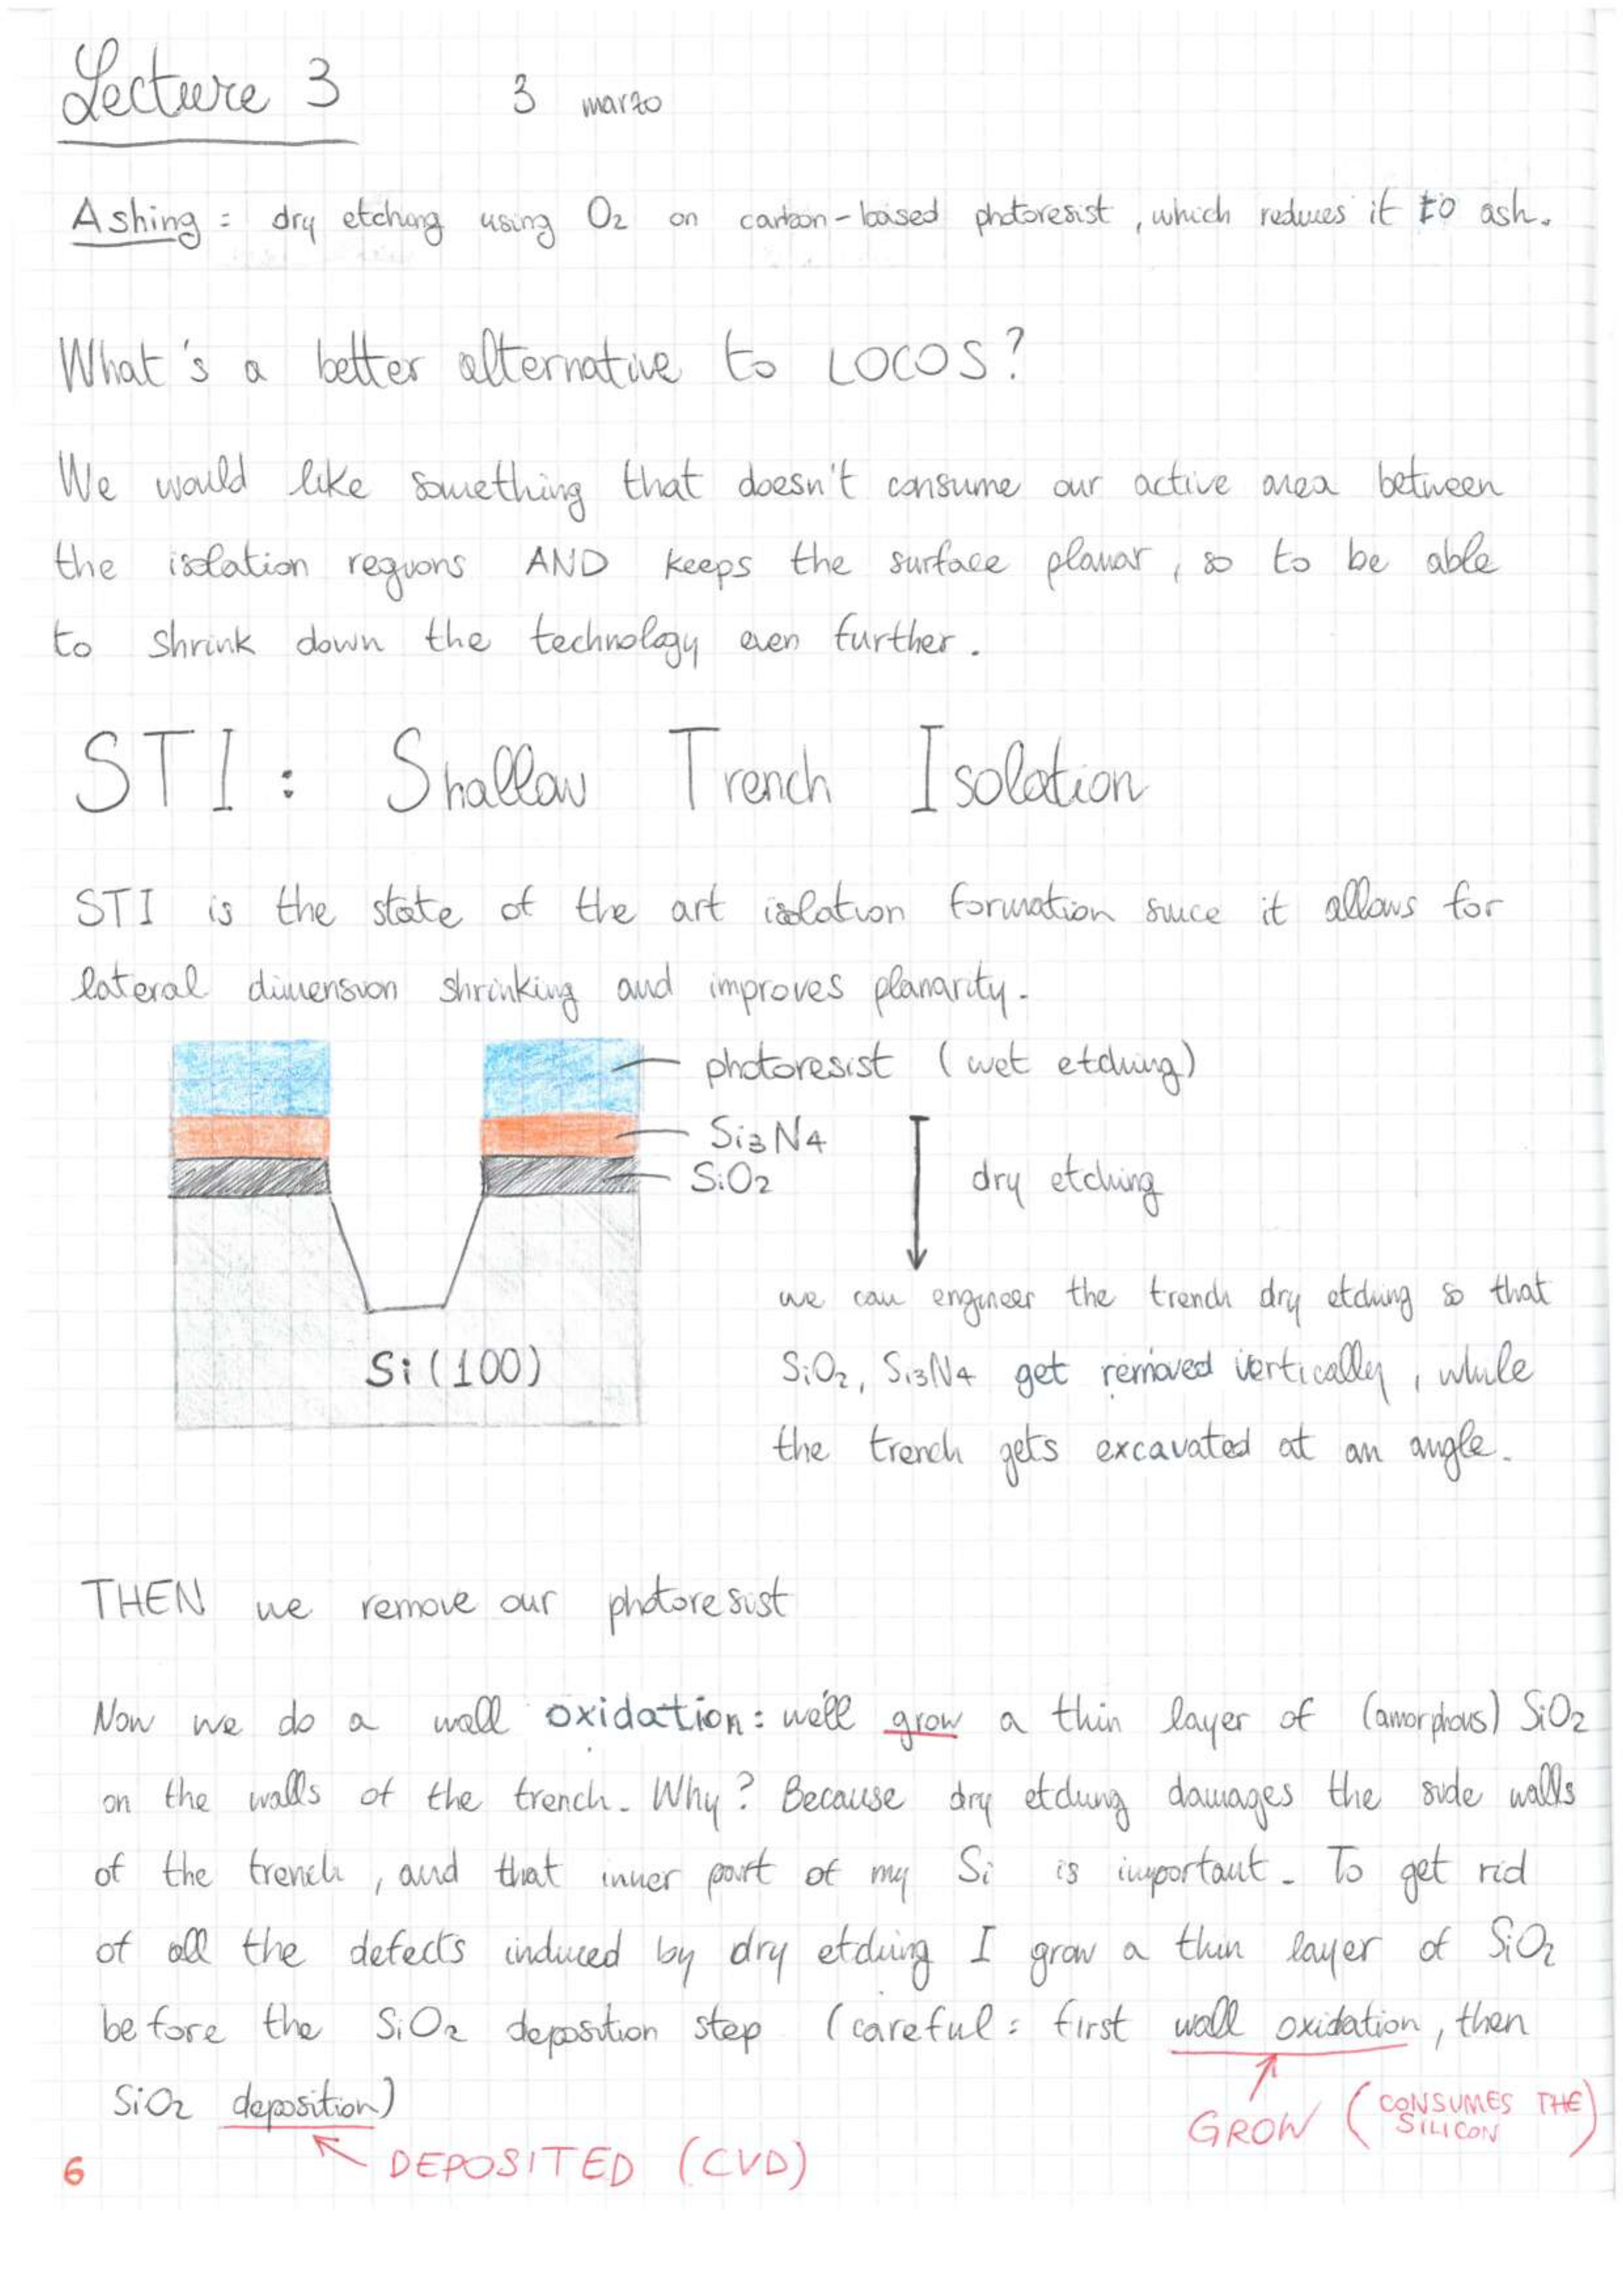 Lecture 3 3 marzo
Ashing: dry etching using O2 on carbon-based photoresist, which reduces it to ash.
What's a better alternative to LOCOS?
We would like something that doesn't consume our active area between
the isolation regions AND keeps the surface planar, so to be able
to shrink down the technology even further.
STI: Shallow Trench Isolation
STI is the state of the art isolation formation since it allows for
lateral dimension shrinking and improves planarity.
photoresist (wet etching)
Si3N4
SiO2
dry etching
we can engineer the trench dry etching so that
Si(100)
SiO2, Si3N4 get removed vertically, while
the trench gets excavated at an angle.
THEN we remove our photoresist
Now we do a wall oxidation: we'll grow a thin layer of (amorphous) SiO2
on the walls of the trench. Why? Because dry etching damages the side walls
of the trench, and that inner part of my Si is important. To get rid
of all the defects induced by dry etching I grow a thin layer of SiO2
before the SiO2 deposition step (careful: first wall oxidation, then
SiO2 deposition)
GROW (CONSUMES THE SILICON)
DEPOSITED (CVD)
6